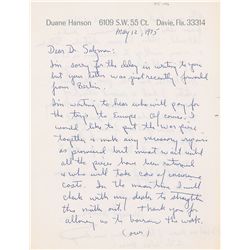 Duane Hanson 6109 S.W. 55 Ct. Davie, Fla. 33314
May 12, 1975
Dear Dr. Salzman:
I'm sorry for the delay in writing to you
but your letter was just recently forwarded
from Berlin.
I'm waiting to hear who will pay for
the trip to Europe. Of course, I
would like to put the two pieces
together & make any necessary repairs
as promised but must wait until
all the pieces have been returned
& who will take care of insurance
costs. In the meantime I will
check with my dealer to straighten
this matter out! Thank you for
allowing us to borrow the work.
(over)